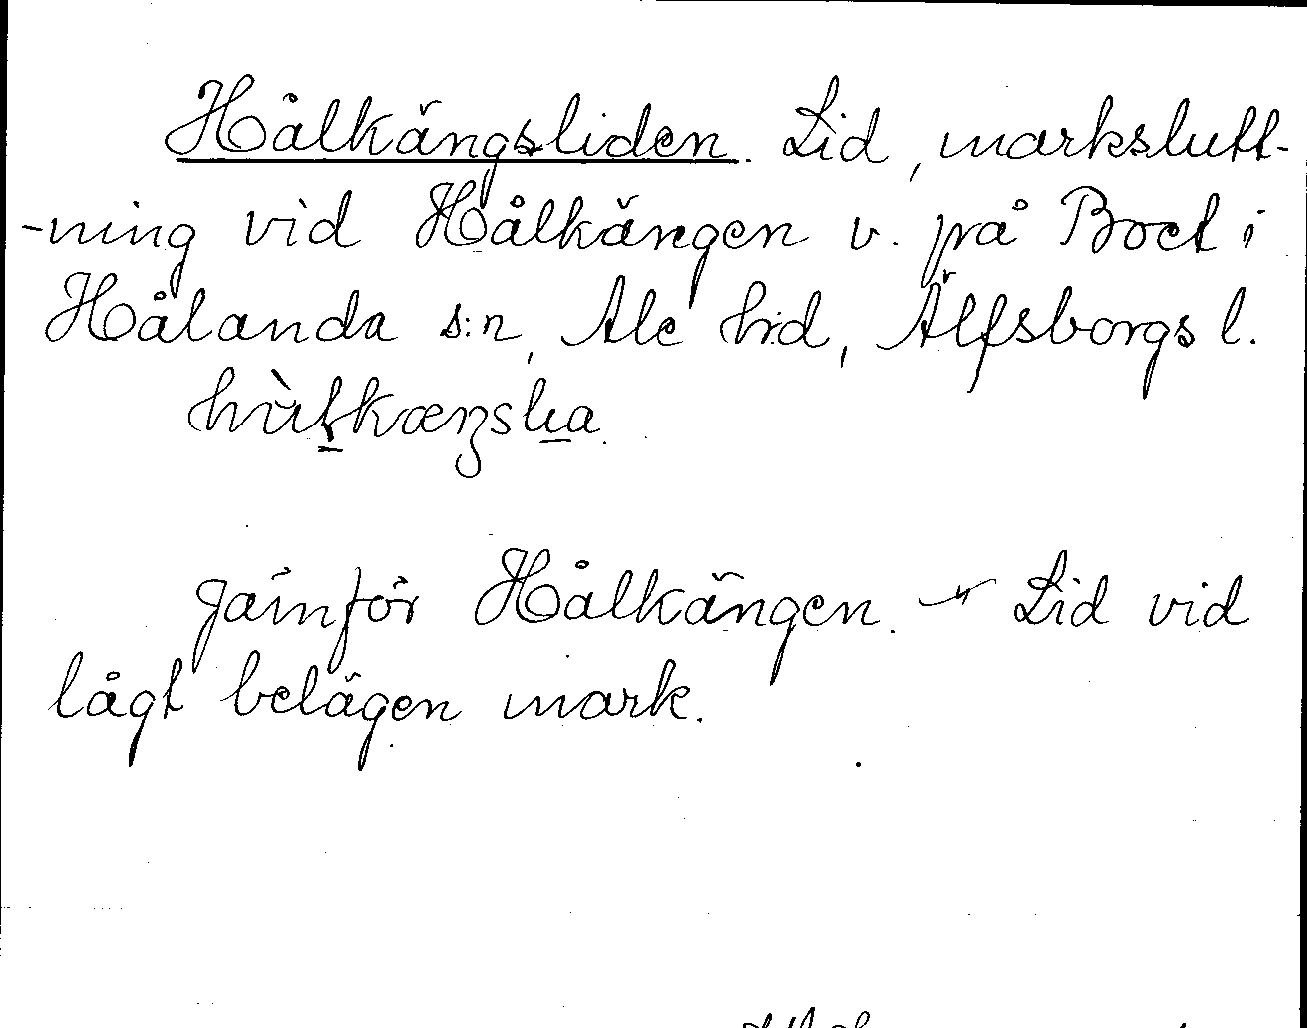 Hålkängsliden. Lid, markslutt-
-ning vid Hålkängen v. på Boet i
Hålanda s:n, Ale hrd, Älfsborgs l.
Jämför Hålkängen. Lid vid
lågt belägen mark.